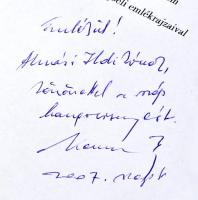 im
seli emlékrajzaival
Emlékül!
Almási Ildikónak,
köszönettel a szép
hangversenyért.
2007. szept